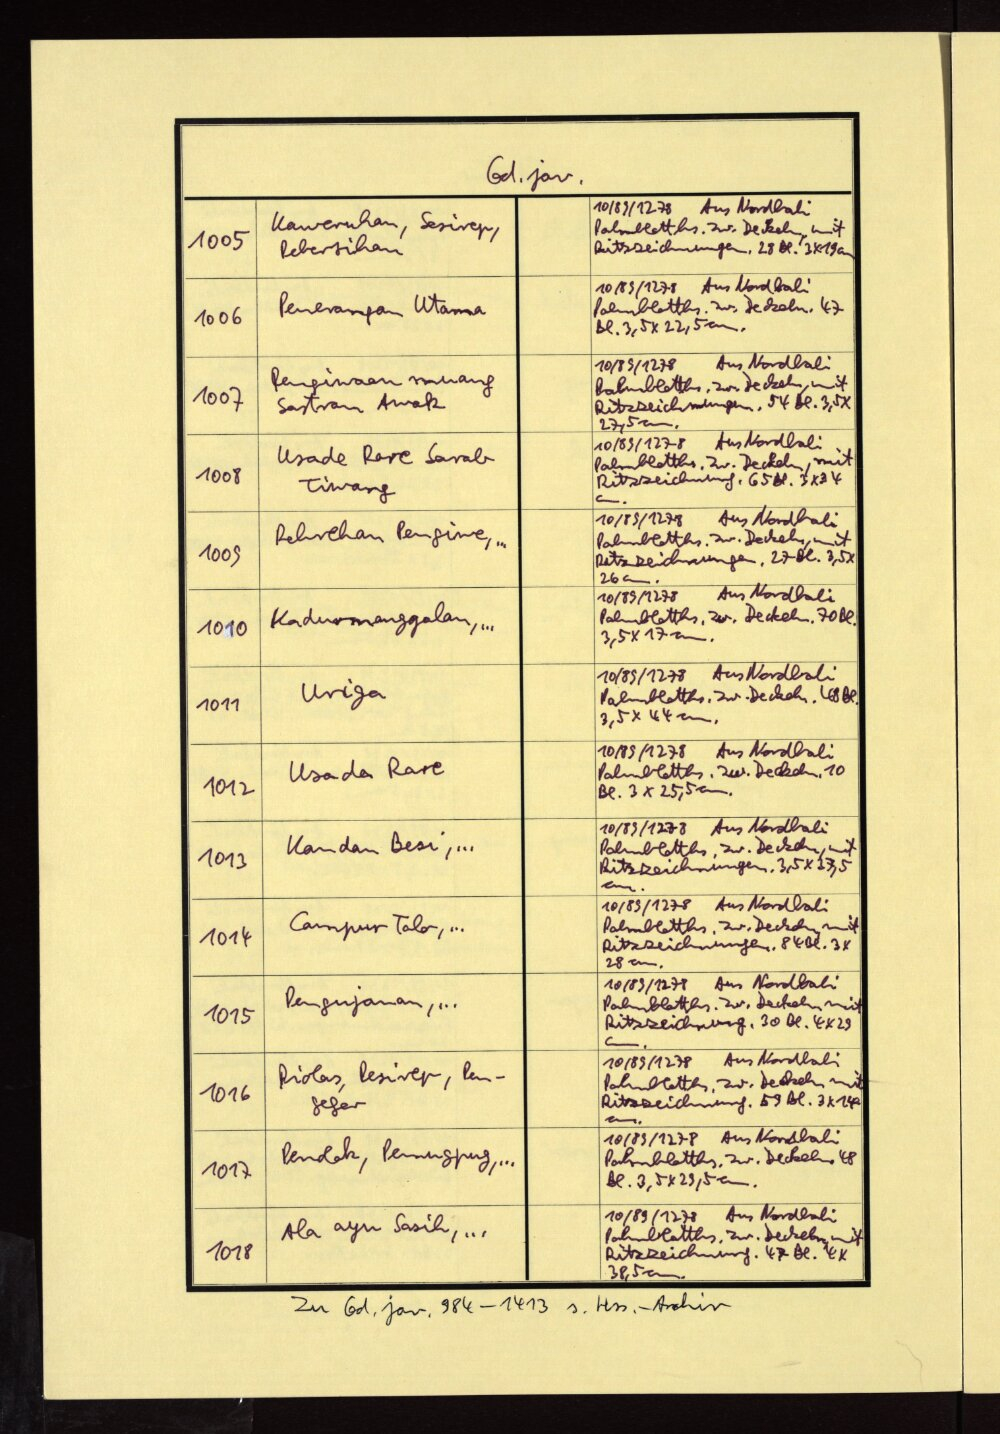 Cod. jav.
1005
Kaweruhan, Sesirep,
Pebersihan
10/89/1278 Aus Nordbali
Palmblatths. zw. Deckeln, mit
Ritzzeichnungen. 28 Bl. 3x19cm
1006
Penerangan Utama
10/89/1278 Aus Nordbali
Palmblatths. zw. Deckeln. 47
Bl. 3,5x22,5cm.
1007
Pengiwaan muang
Sastran Awak
10/89/1278 Aus Nordbali
Palmblatths. zw. Deckeln, mit
Ritzzeichnungen. 54 Bl. 3,5x
27,5cm.
1008
Usade Rare Sarab
Tiwang
10/89/1278 Aus Nordbali
Palmblatths. zw. Deckeln, mit
Ritzzeichnung. 65 Bl. 3x34
cm.
1009
Pengiwe,...
10/89/1278 Aus Nordbali
Palmblatths. zw. Deckeln, mit
Ritzzeichnungen. 27 Bl. 3,5x
26cm.
1010
Kadurmanggalan,...
10/89/1278 Aus Nordbali
Palmblatths. zw. Deckeln. 70 Bl.
3,5x17cm.
1011
Uriga
10/89/1278 Aus Nordbali
Palmblatths. zw. Deckeln. 48 Bl.
3,5x44cm.
1012
Usada Rare
10/89/1278 Aus Nordbali
Palmblatths. zw. Deckeln. 10
Bl. 3x25,5cm.
1013
Kandan Besi,...
10/89/1278 Aus Nordbali
Palmblatths. zw. Deckeln, mit
Ritzzeichnungen. 3,5x37,5
cm.
1014
Campur Talo,...
10/89/1278 Aus Nordbali
Palmblatths. zw. Deckeln, mit
Ritzzeichnungen. 84 Bl. 3x
28cm.
1015
Pengujanan,...
10/89/1278 Aus Nordbali
Palmblatths. zw. Deckeln, mit
Ritzzeichnung. 30 Bl. 4x29
cm.
1016
Piolas, Pesirep, Pen-
geger
10/89/1278 Aus Nordbali
Palmblatths. zw. Deckeln, mit
Ritzzeichnung. 59 Bl. 3x14
cm.
1017
Pendok, Penugpug,...
10/89/1278 Aus Nordbali
Palmblatths. zw. Deckeln. 48
Bl. 3,5x29,5cm.
1018
Ala ayu Sasih,...
10/89/1278 Aus Nordbali
Palmblatths. zw. Deckeln, mit
Ritzzeichnung. 47 Bl. 4x
38,5cm.
Zu Cod. jav. 984-1413 s. Hss.-Archiv